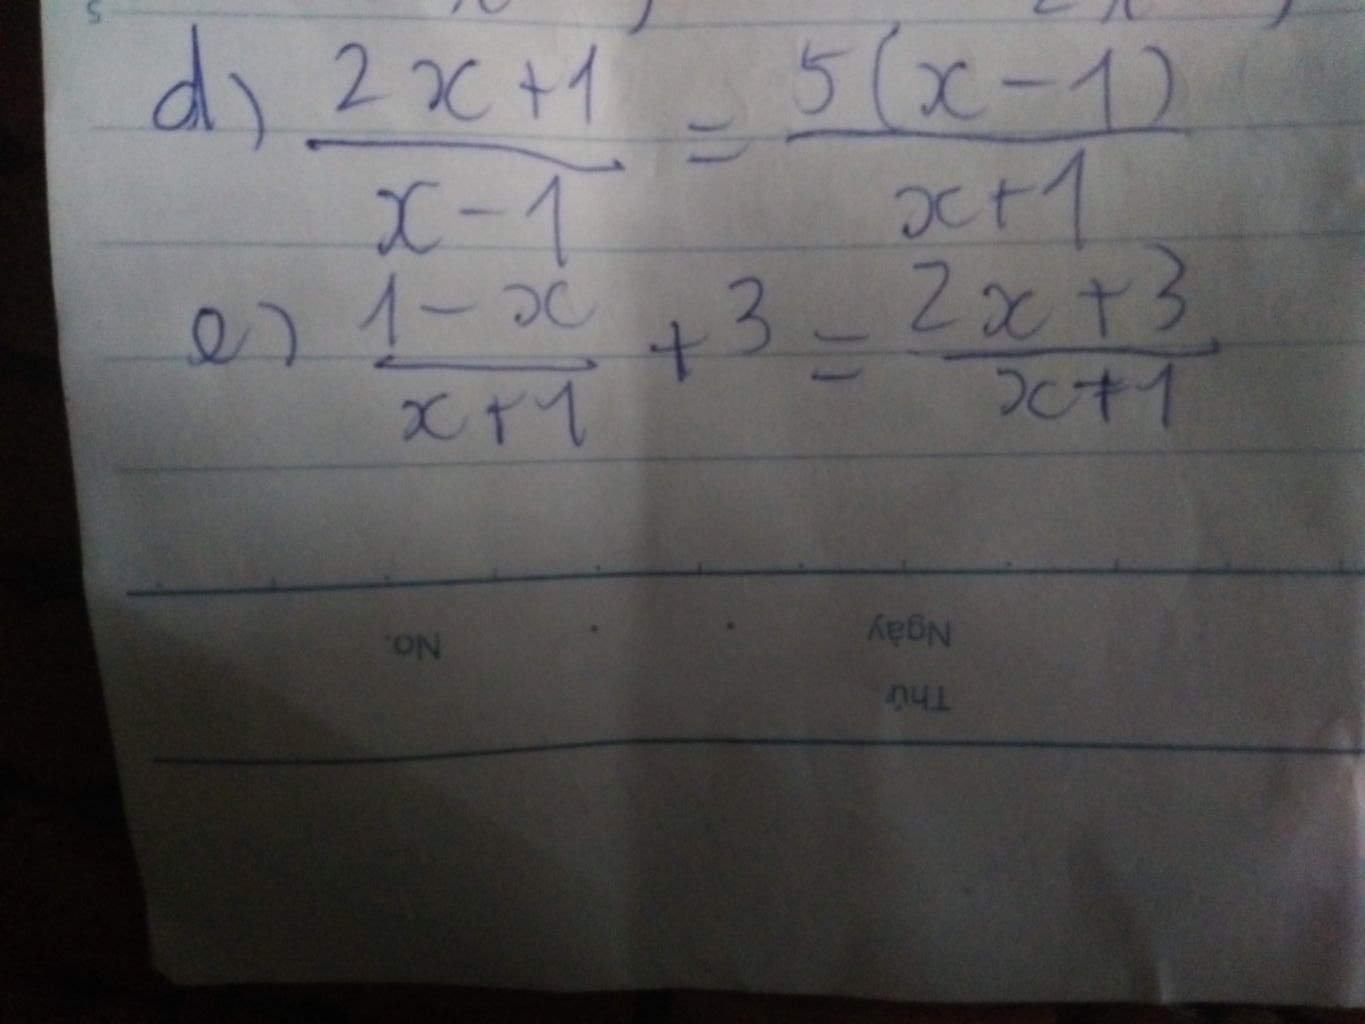 d) (2x+1)/(x-1) = 5(x-1)/(x+1)
e) (1-x)/(x+1) + 3 = (2x+3)/(x+1)
No.
Ngày
Thứ